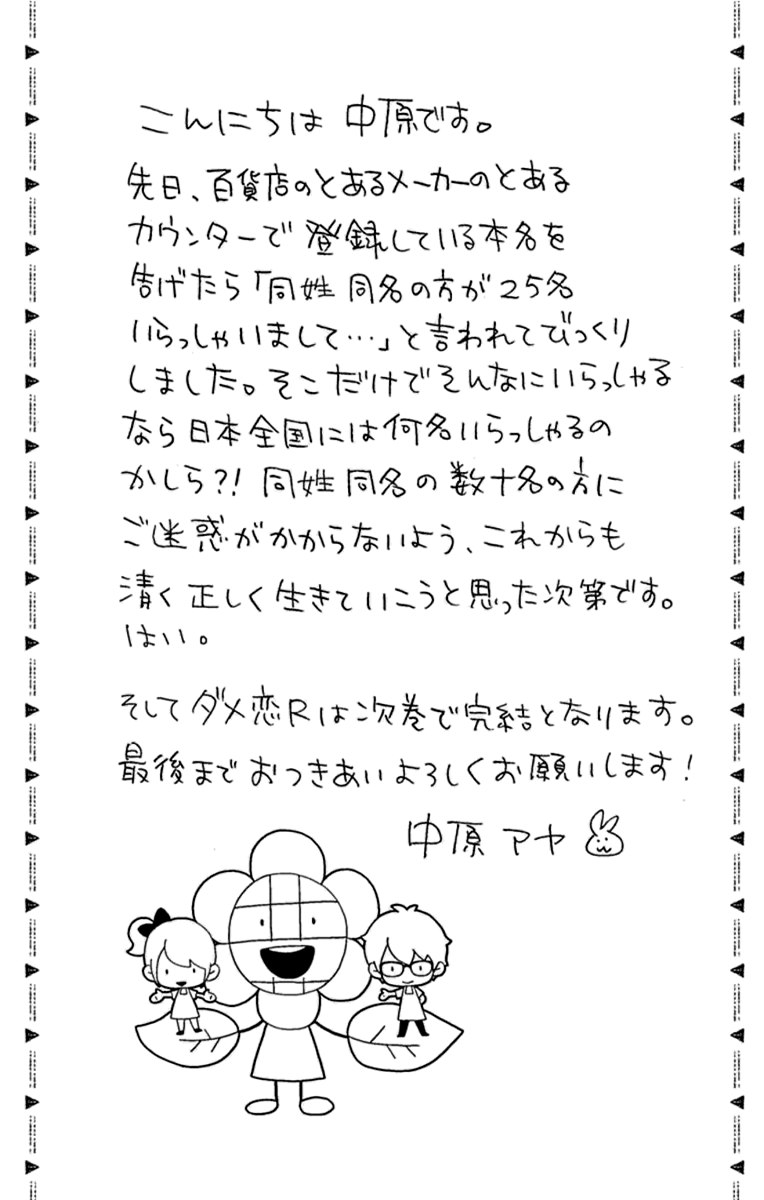 こんにちは 中原です。
先日、百貨店のとあるメーカーのとある
カウンターで登録している本名を
告げたら「同姓同名の方が25名
いらっしゃいまして…」と言われてびっくり
しました。そこだけでそんなにいらっしゃる
なら日本全国には何名いらっしゃるの
かしら?! 同姓同名の数十名の方に
ご迷惑がかからないよう、これからも
清く正しく生きていこうと思った次第です。
はい。
そしてダメ恋Rは次巻で完結となります。
最後までおつきあいよろしくお願いします!
中原アヤ